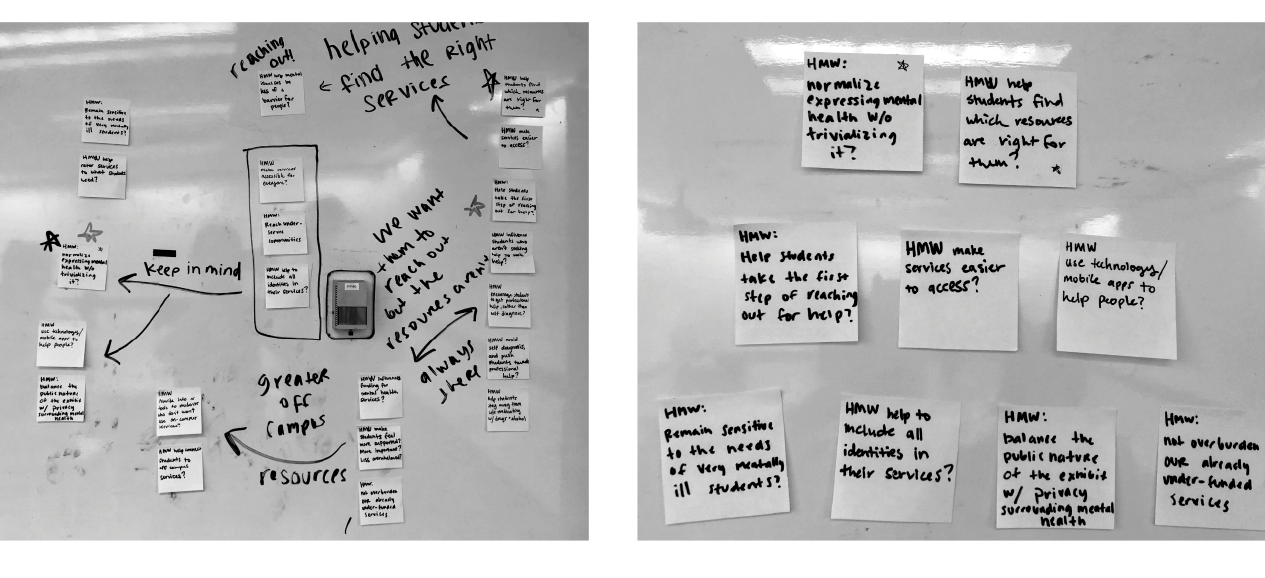 reaching
out!
helping students
find the right
services
HMW help mental
illnesses be
less of a
barrier for
people?
HMW:
Remain sensitive
to the needs
of very mentally
ill students?
HMW help
cater services
to what students
need?
HMW:
normalize
expressing mental
health w/o
trivializing
it?
keep in mind
HMW
use technology/
mobile apps to
help people?
HMW:
balance the
public nature
of the exhibit
w/ privacy
surrounding mental
health
HMW
make services
accessible for
everyone?
HMW:
Reach under-
serve
communities
HMW help to
include all
identities in
their services?
We want
them to
reach out
but the
resources aren't
always
there
HMW help
students find
which resources
are right for
them?
HMW make
services easier
to access?
HMW:
Help students
take the first
step of reaching
out for help?
HMW influence
students who
aren't seeking
help to seek
help?
HMW
encourage students
to get professional
help, rather than
self diagnose?
HMW avoid
self diagnosis,
and push
students towards
professional
help?
HMW
help students
stay away from
self medicating
w/ drugs + alcohol
greater
off
campus
resources
HMW
services?
HMW help connect
students to
off campus
services?
HMW influence
funding for
mental health
services?
HMW make
students feel
more supported?
More important?
Less overwhelmed?
HMW:
not overburden
our already
under-funded
services
HMW:
normalize
expressing mental
health w/o
trivializing
it?
HMW help
students find
which resources
are right for
them?
HMW:
Help students
take the first
step of reaching
out for help?
HMW make
services easier
to access?
HMW
use technology/
mobile apps to
help people?
HMW:
Remain sensitive
to the needs
of very mentally
ill students?
HMW help to
include all
identities in
their services?
HMW:
balance the
public nature
of the exhibit
w/ privacy
surrounding mental
health
HMW:
not overburden
our already
under-funded
services